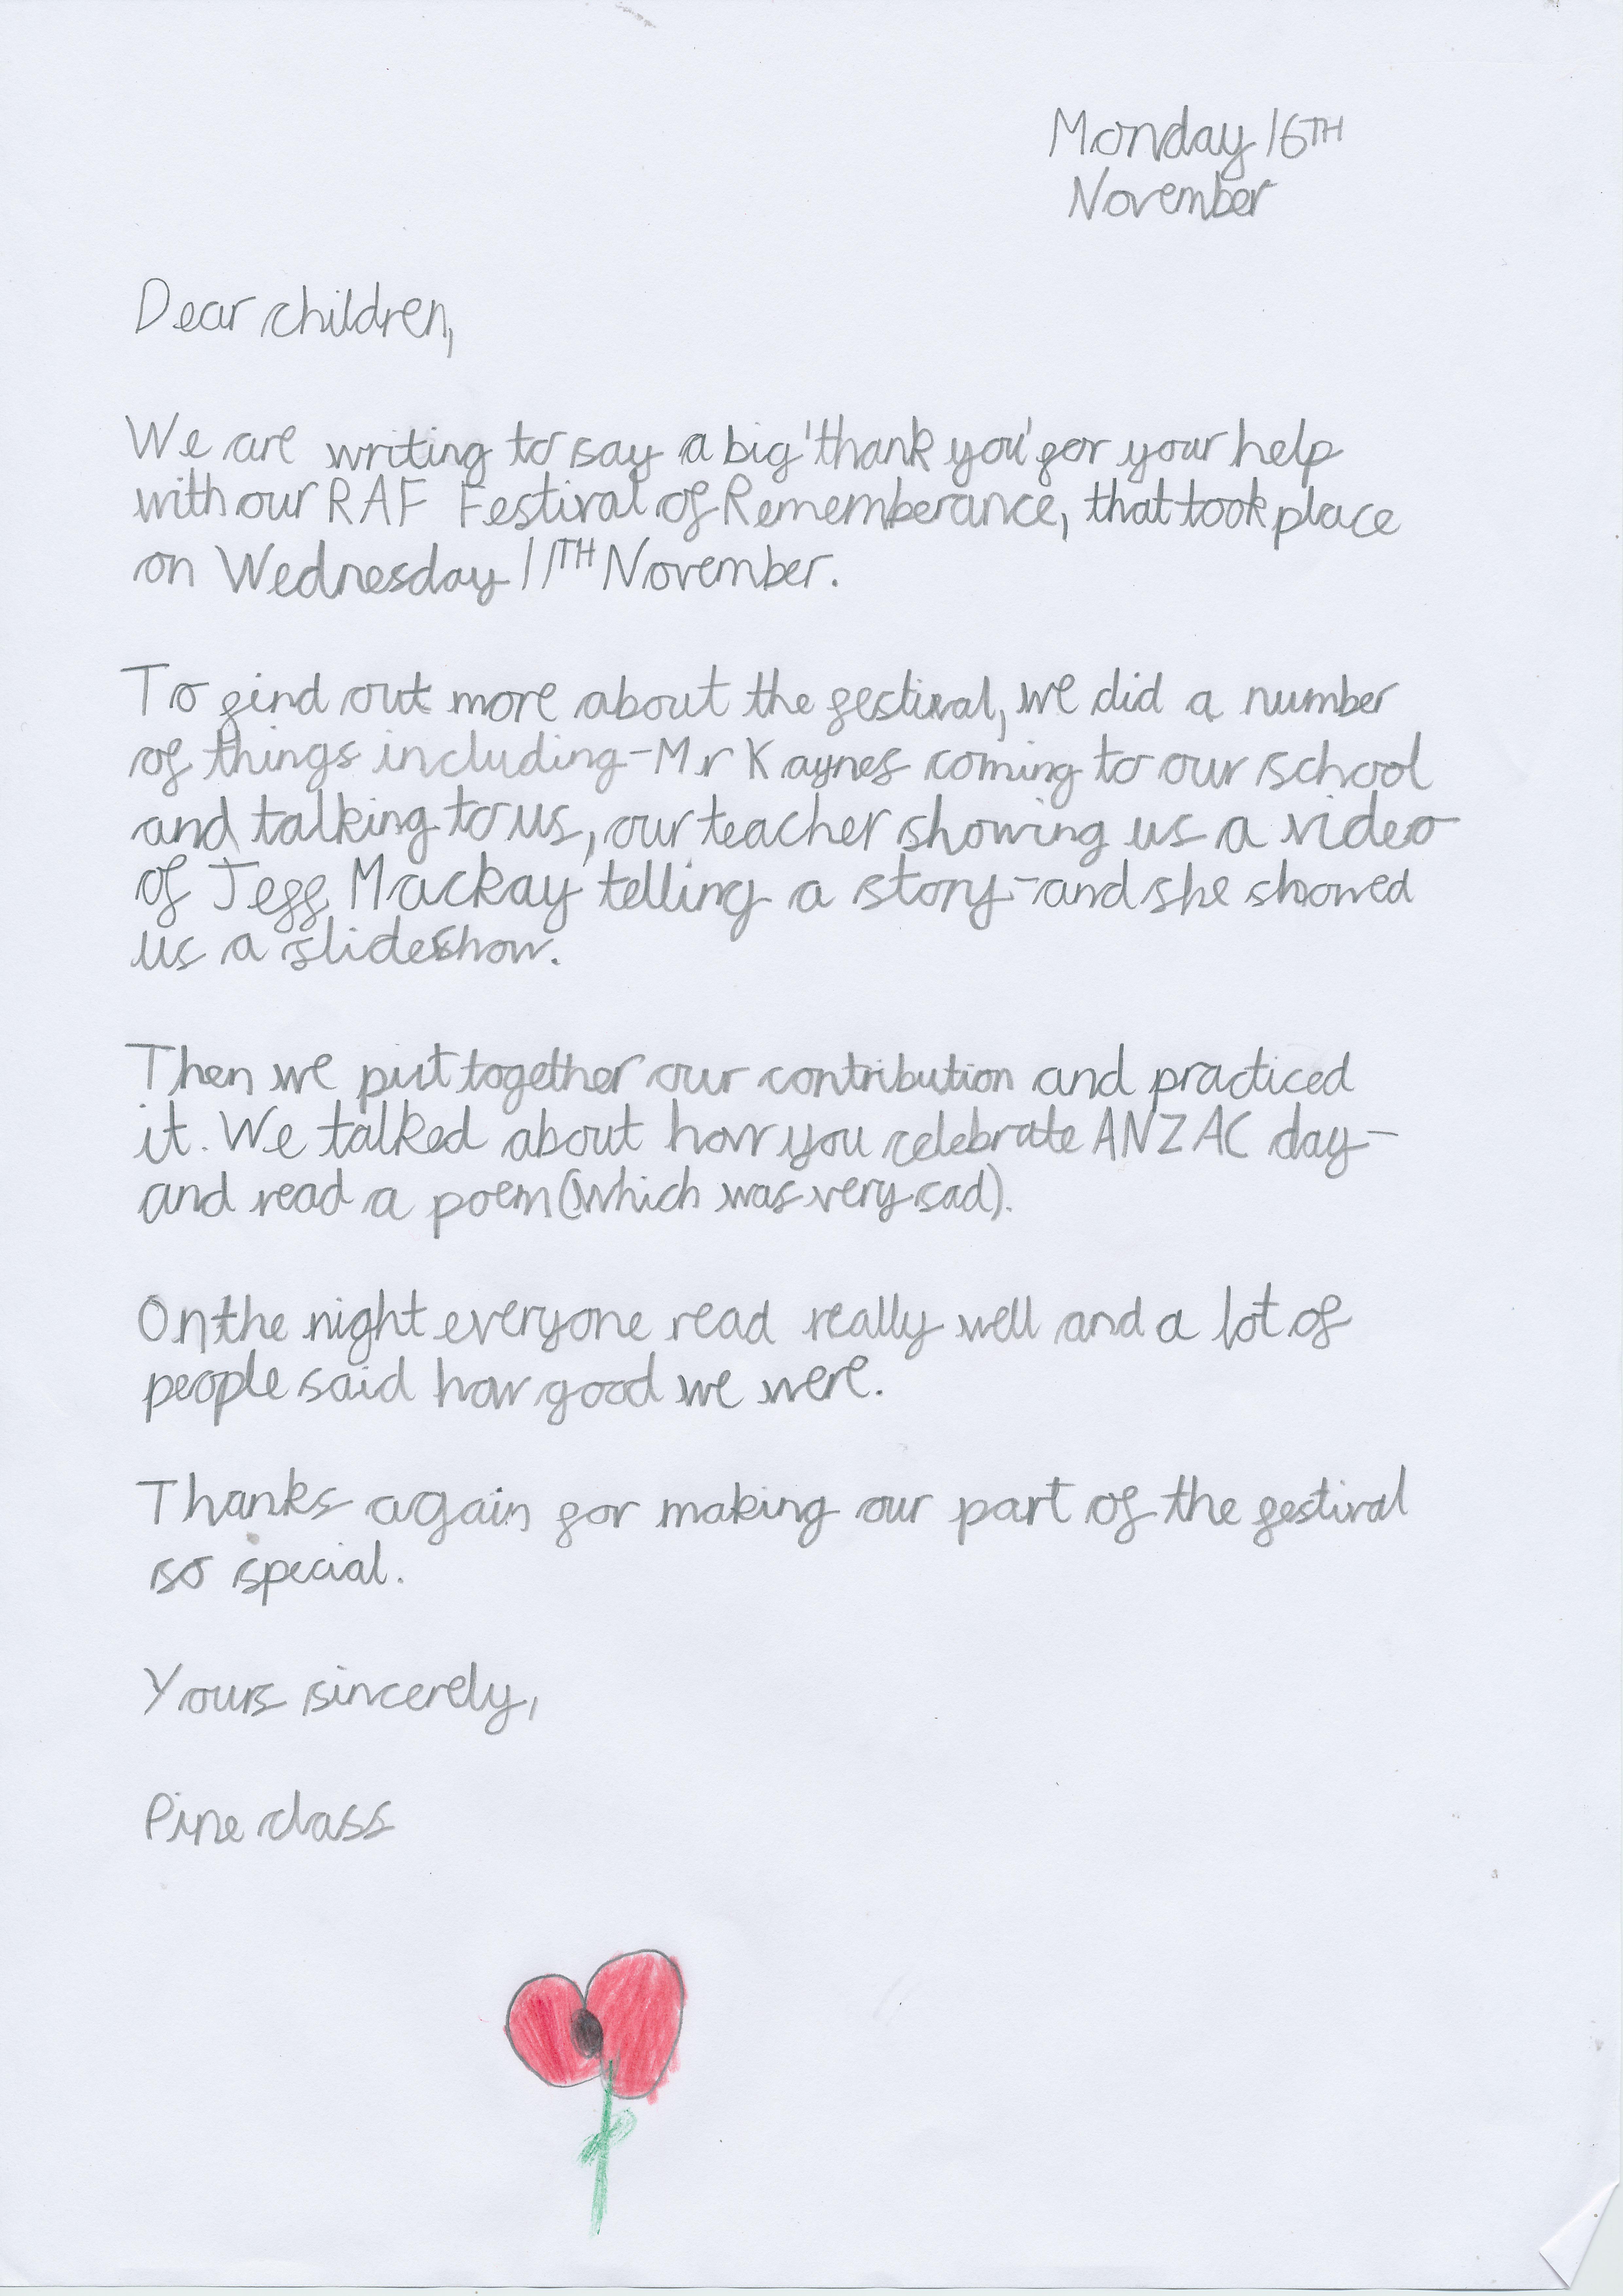 Monday 16TH
November
Dear children,
We are writing to say a big 'thank you' for your help
with our RAF Festival of Rememberance, that took place
on Wednesday 11TH November.
To find out more about the festival, we did a number
of things including-Mr Kaynes coming to our school
and talking to us, our teacher showing us a video
of Jeff Mackay telling a story-and she showed
us a slideshow.
Then we put together our contribution and practiced
it. We talked about how you celebrate ANZAC day-
and read a poem (which was very sad).
On the night everyone read really well and a lot of
people said how good we were.
Thanks again for making our part of the festival
so special.
Yours sincerely,
Pine class